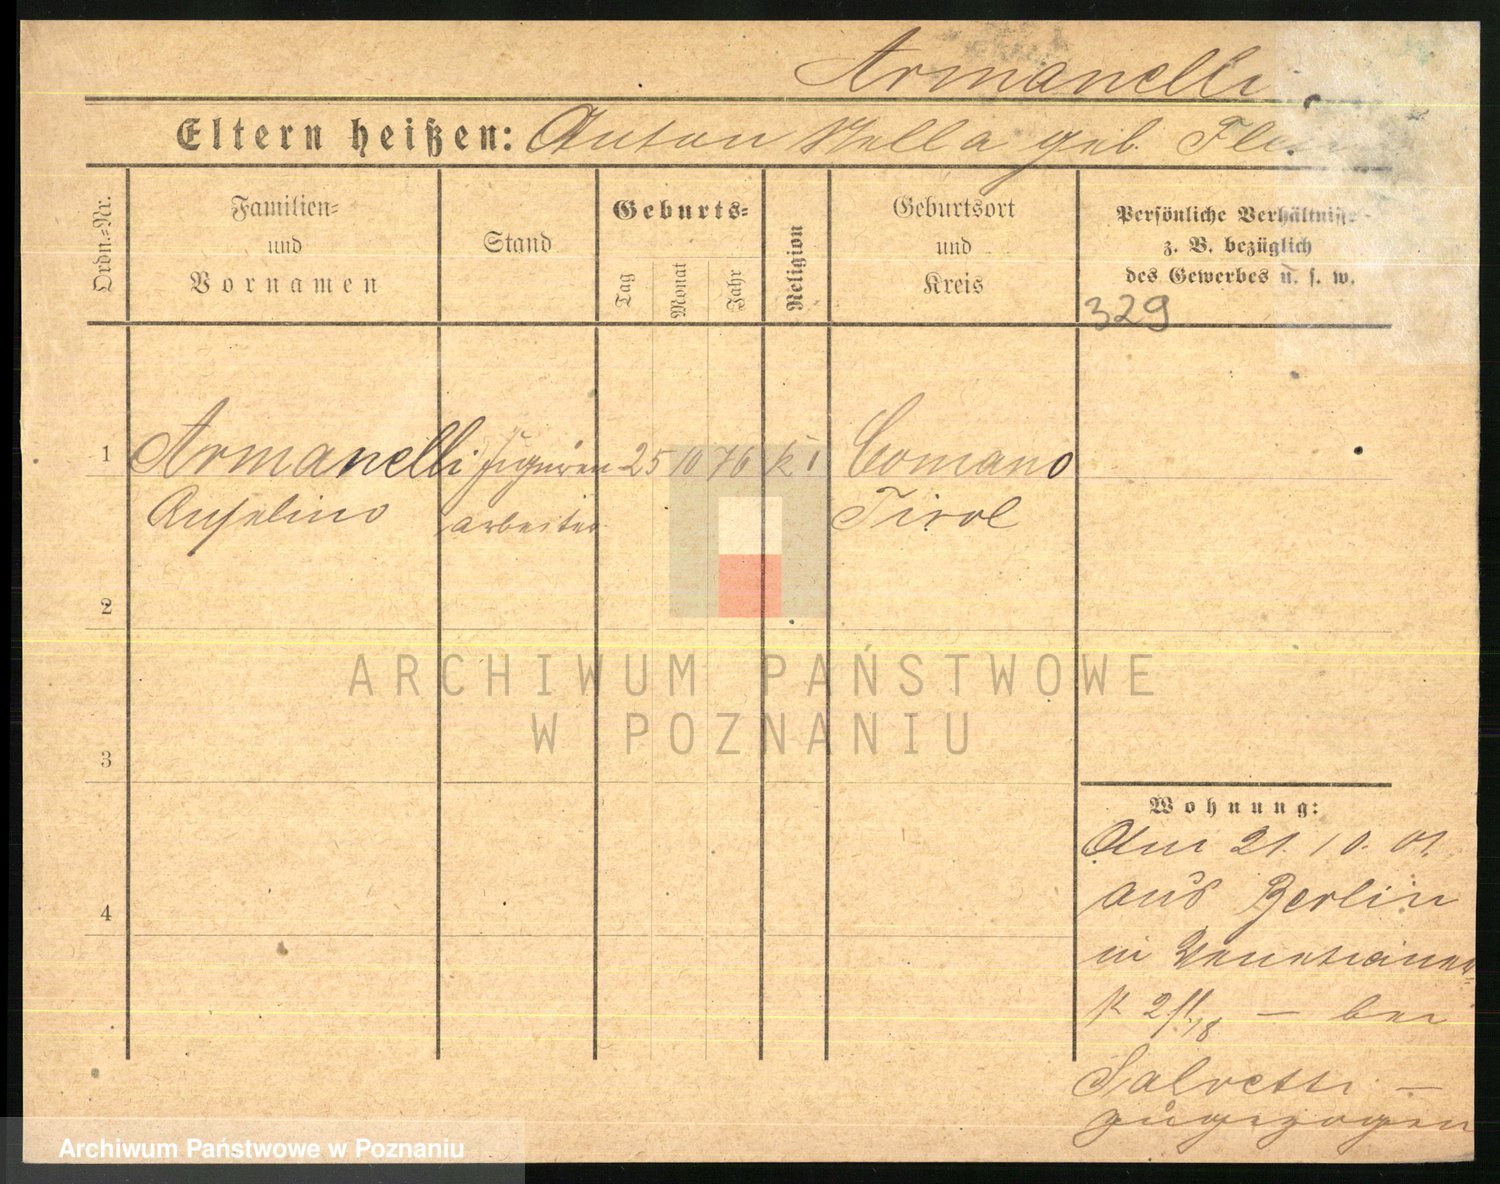 Armanelli
Eltern heißen: Anton Stella geb.
Ordn.-Nr.
Familien-
und
Vornamen
Stand
Geburts-
Tag
Monat
Jahr
Religion
Geburtsort
und
Kreis
Persönliche Verhältnisse
z. B. bezüglich
des Gewerbes u. s. w.
329
1 Armanelli Figuren 25 10 76 k Comano
Anselino arbeiter Tirol
2
3
4
Wohnung:
Am 21. 10. 01.
aus Berlin
in Venetianer-
bei
Salvetti —
zugezogen
ARCHIWUM PAŃSTWOWE
W POZNANIU
Archiwum Państwowe w Poznaniu